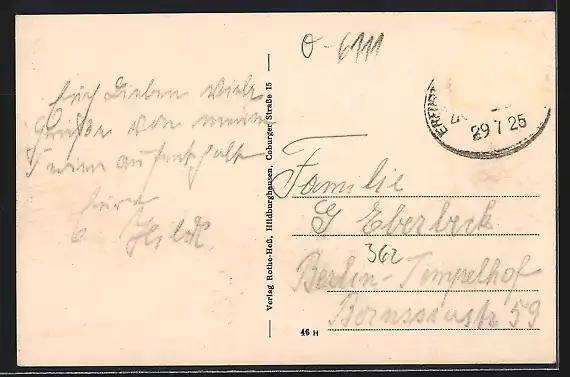 Euch Lieben viele
Grüße von meinem
Ferienaufenthalt
Eure
Hilde.
Verlag Rothe-Heß, Hildburghausen, Coburger Straße 15
0-6111
29 7 25
Familie
G Eberbeck
362
Berlin-Tempelhof
Borussiastr 59
46 H